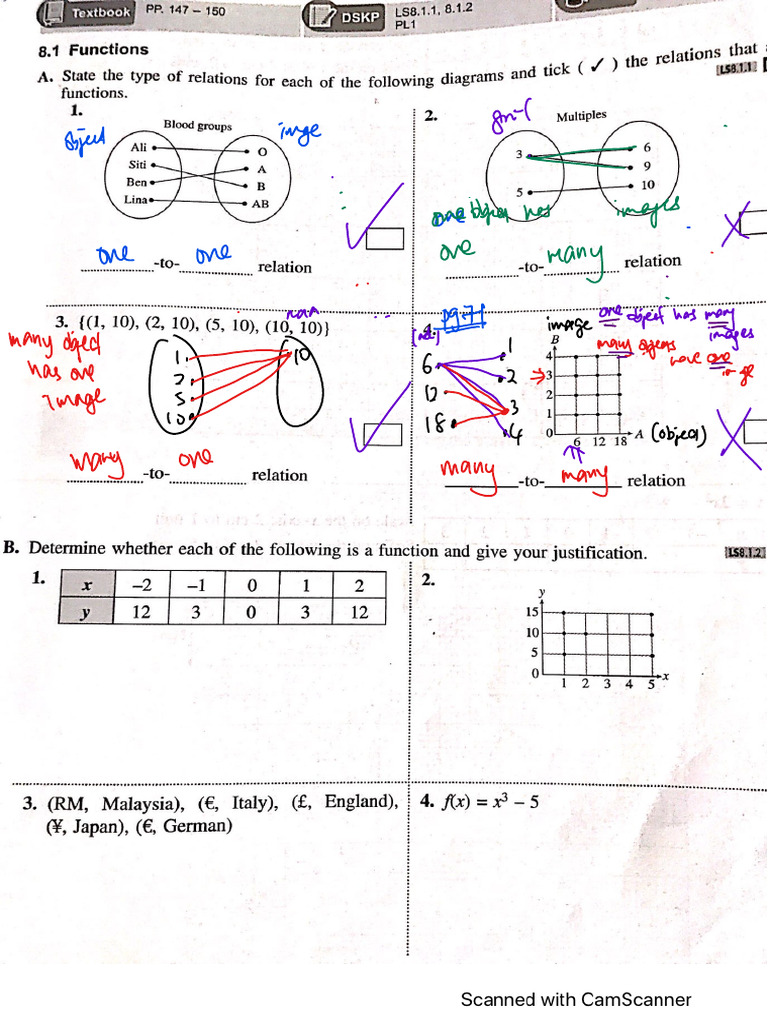 Textbook PP. 147 – 150
DSKP LS8.1.1, 8.1.2
PL1
8.1 Functions
A. State the type of relations for each of the following diagrams and tick ( ✓ ) the relations that
functions.
LS8.1.1
1.
Blood groups
object
image
Ali
Siti
Ben
Lina
O
A
B
AB
one -to- one relation
2.
Multiples
3
5
6
9
10
one object has images
one -to- many relation
3. {(1, 10), (2, 10), (5, 10), (10, 10)}
many object
has one
image
1
2
5
10
10
many -to- one relation
4.
pg. 71
6
12
18
1
2
3
4
image
one object has many
images
many objects
have one
image
B
4
3
2
1
0
6 12 18 A (object)
many -to- many relation
B. Determine whether each of the following is a function and give your justification.
LS8.1.2
1.
x –2 –1 0 1 2
y 12 3 0 3 12
2.
y
15
10
5
0
1 2 3 4 5 x
3. (RM, Malaysia), (€, Italy), (£, England),
(¥, Japan), (€, German)
4. f(x) = x³ – 5
Scanned with CamScanner